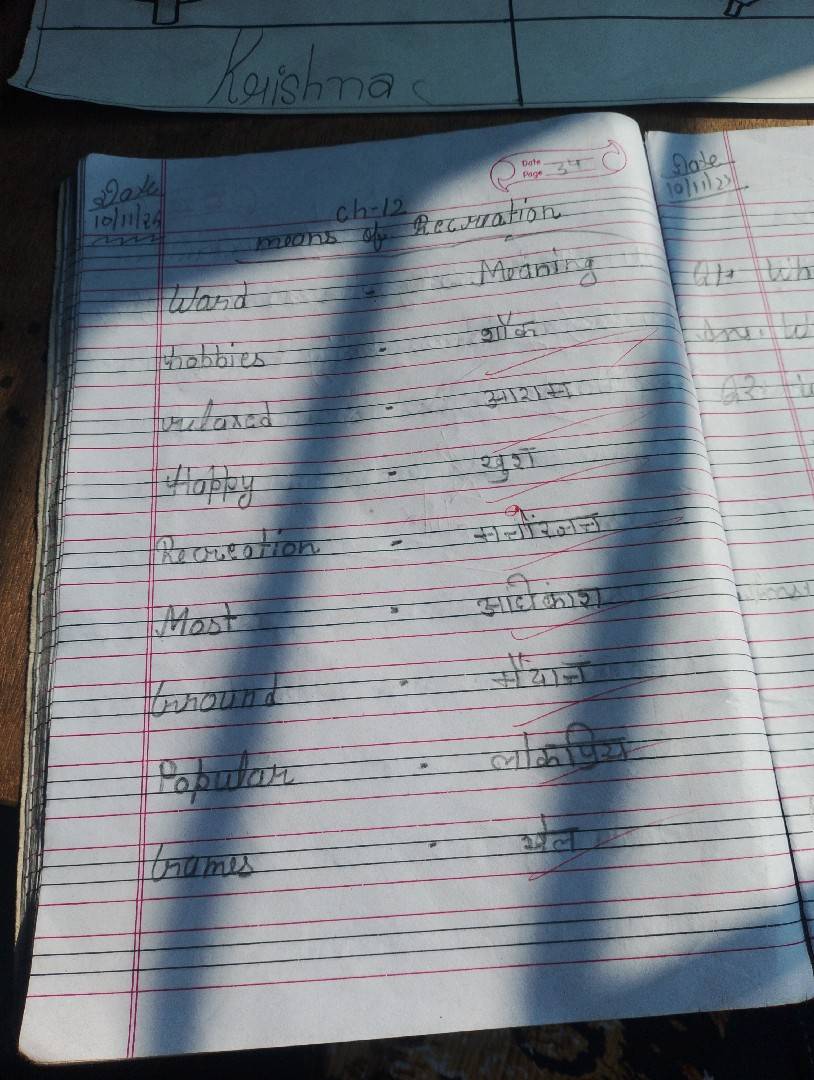 Krishna
Date
10/11/2
Date
Page 34
ch-12
means of Recreation
Word - Meaning
hobbies - शौक
relaxed - आराम
Happy - खुश
Recreation - मनोरंजन
Most - अधिकांश
Ground - मैदान
Popular - लोकप्रिय
Games - खेल
Date
10/11/2
Q1. Wh
Ans. W
Q2.